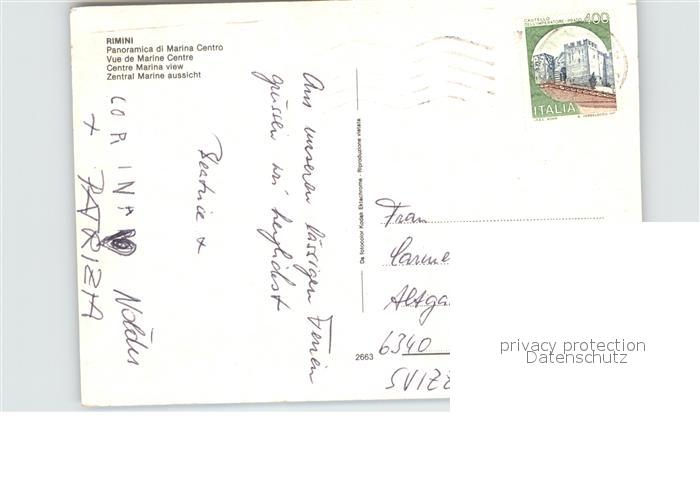 RIMINI
Panoramica di Marina Centro
Vue de Marine Centre
Centre Marina view
Zentral Marine aussicht
CASTELLO DELL'IMPERATORE - PRATO
400
ITALIA
Aus unseren lässigen Ferien
grüssen wir herzlichst
Beatrice +
CORINA
+ PATRIZIA
Da fotocolor Kodak Ektachrome - Riproduzione vietata
2663
Frau
Carme
Altga
6340
SVIZZ
privacy protection
Datenschutz